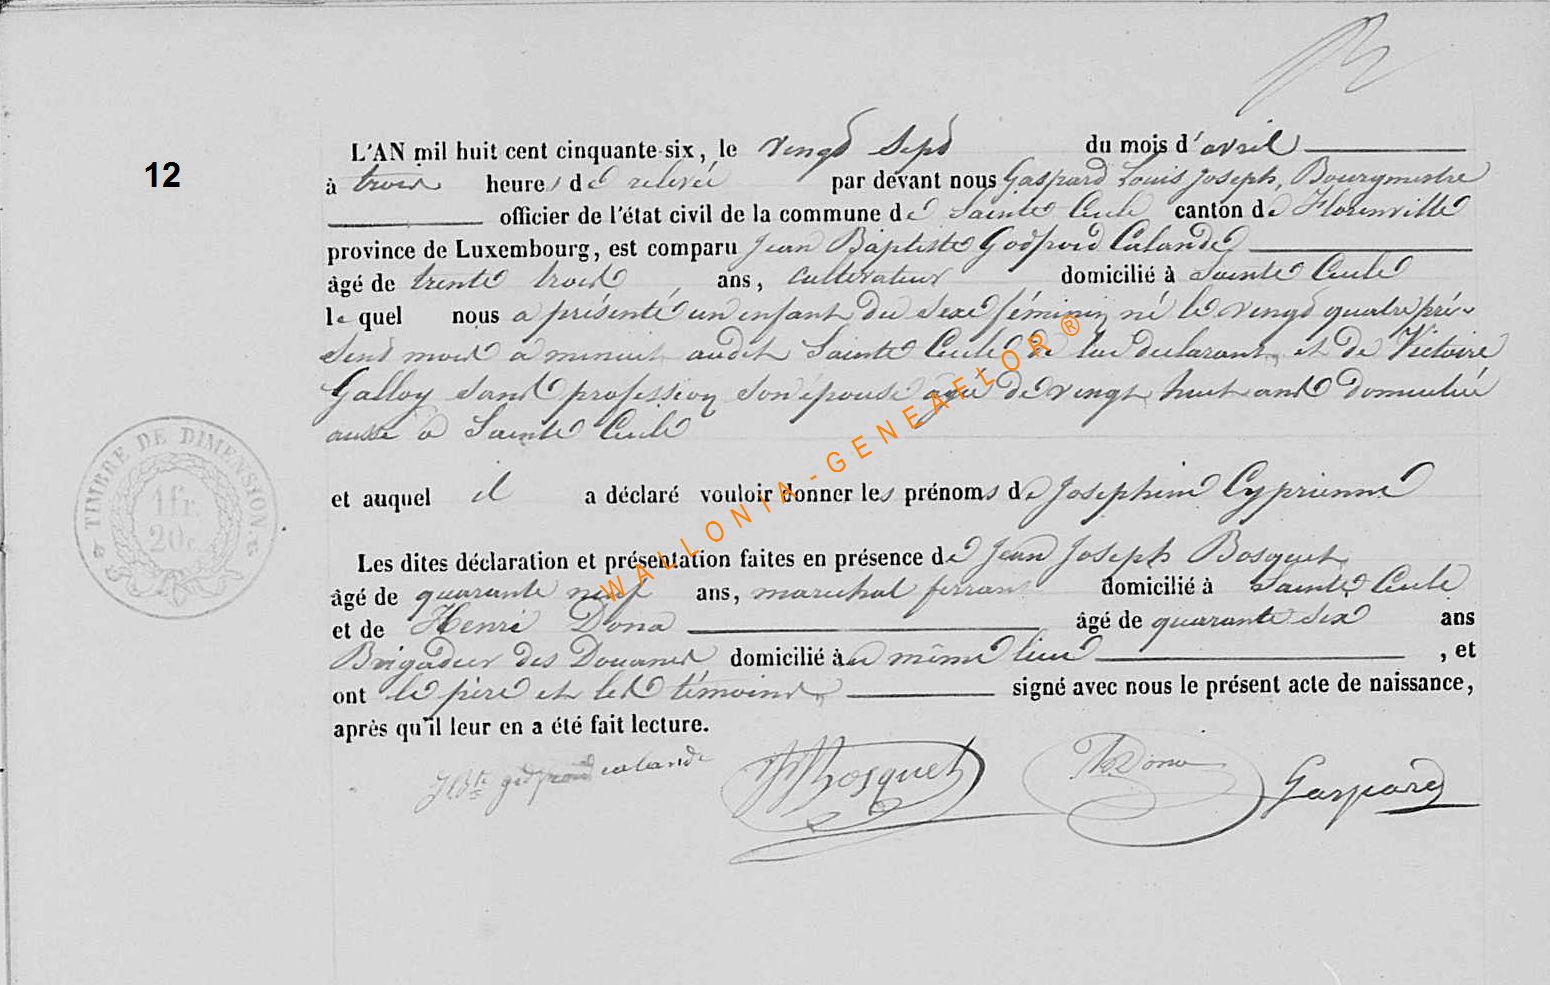 12
L'AN mil huit cent cinquante-six, le vingt sept du mois d'avril
à trois heures de relevée par devant nous Gaspard Louis Joseph, Bourgmestre
officier de l'état civil de la commune de Sainte Cecile canton de Florenville
province de Luxembourg, est comparu Jean Baptiste Godfroid Calande
âgé de trente trois ans, cultivateur domicilié à Sainte Cecile
le quel nous a présenté un enfant du sexe féminin né le vingt quatre pré-
sent mois à minuit audit Sainte Cecile de lui declarant, et de Victoire
Galloy sans profession son épouse agée de vingt huit ans domiciliée
aussi à Sainte Cecile
et auquel il a déclaré vouloir donner les prénoms de Josephine Cyprienne
Les dites déclaration et présentation faites en présence de Jean Joseph Bosquet
âgé de quarante neuf ans, marechal ferrant domicilié à Sainte Cecile
et de Henri Dona âgé de quarante six ans
Brigadier des Douanes domicilié au même lieu , et
ont le père et les témoins signé avec nous le présent acte de naissance,
après qu'il leur en a été fait lecture.
JBte godfroid calande Bosquet Dona Gaspard
TIMBRE DE DIMENSION
1 fr.
20 c.
WALLONIA-GENEAFLOR ®